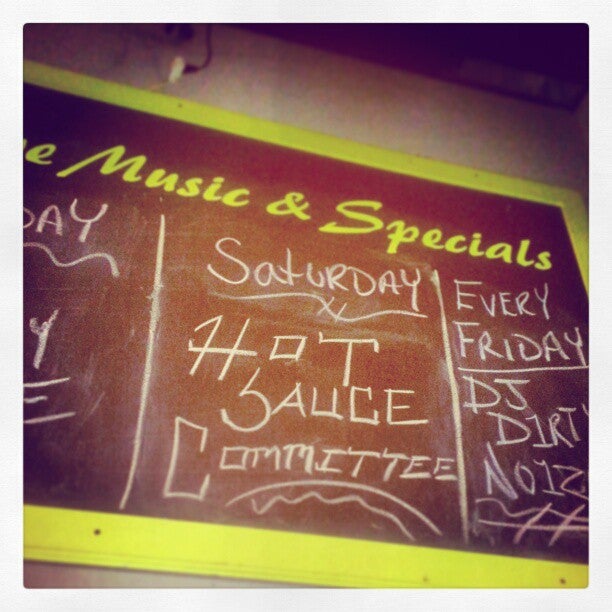 Music & Specials
Saturday
HOT
SAUCE
COMMITTEE
EVERY
FRIDAY
DJ
DIRTY